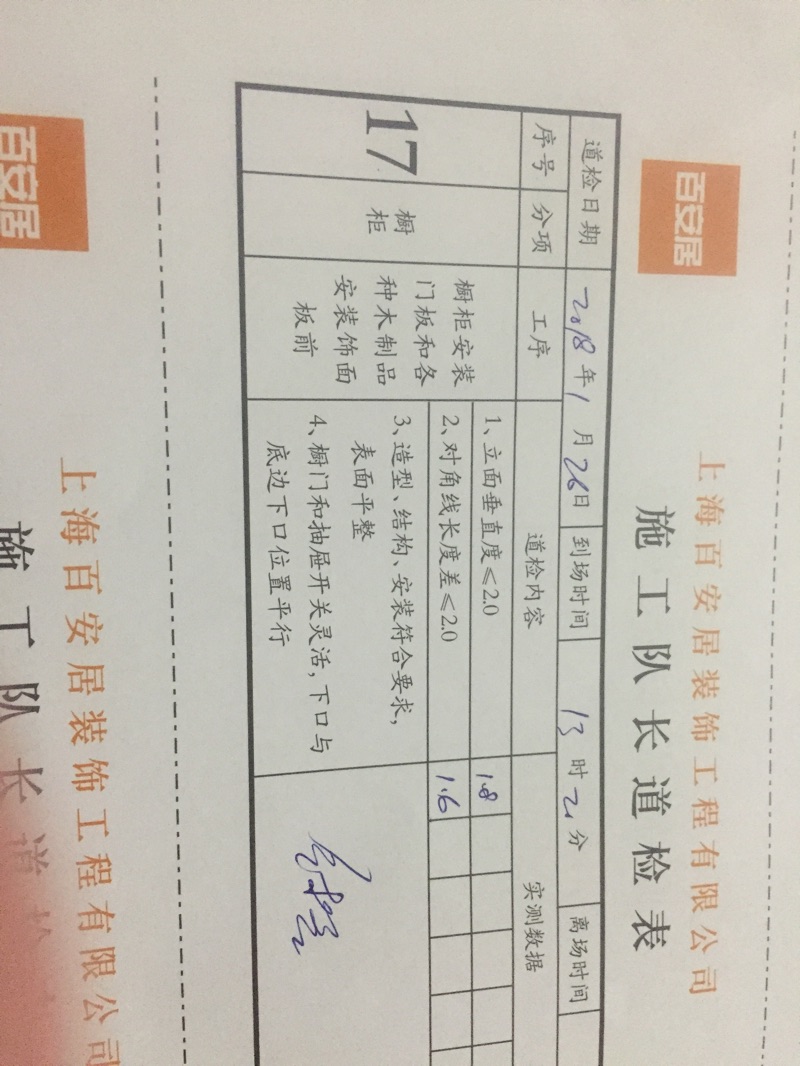 百安居
上海百安居装饰工程有限公司
施工队长道检表
道检日期 2018年1月26日 到场时间 13时21分 离场时间
序号 分项 工序 道检内容 实测数据
17 橱柜
橱柜安装
门板和各
种木制品
安装饰面
板前
1、立面垂直度≤2.0 1.8
2、对角线长度差≤2.0 1.6
3、造型、结构、安装符合要求,
表面平整
4、橱门和抽屉开关灵活,下口与
底边下口位置平行
合格
百安居
上海百安居装饰工程有限公司
施工队长道检